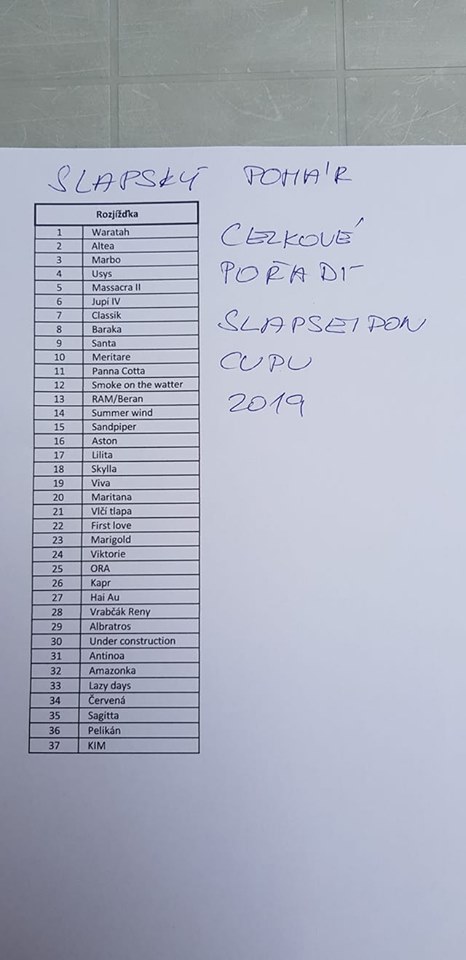 SLAPSKÝ POHÁR
Rozjížďka
1 Waratah
2 Altea
3 Marbo
4 Usys
5 Massacra II
6 Jupi IV
7 Classik
8 Baraka
9 Santa
10 Meritare
11 Panna Cotta
12 Smoke on the watter
13 RAM/Beran
14 Summer wind
15 Sandpiper
16 Aston
17 Lilita
18 Skylla
19 Viva
20 Maritana
21 Vlčí tlapa
22 First love
23 Marigold
24 Viktorie
25 ORA
26 Kapr
27 Hai Au
28 Vrabčák Reny
29 Albratros
30 Under construction
31 Antinoa
32 Amazonka
33 Lazy days
34 Červená
35 Sagitta
36 Pelikán
37 KIM
CELKOVÉ
POŘADÍ
SLAPSEIDON
CUPU
2019